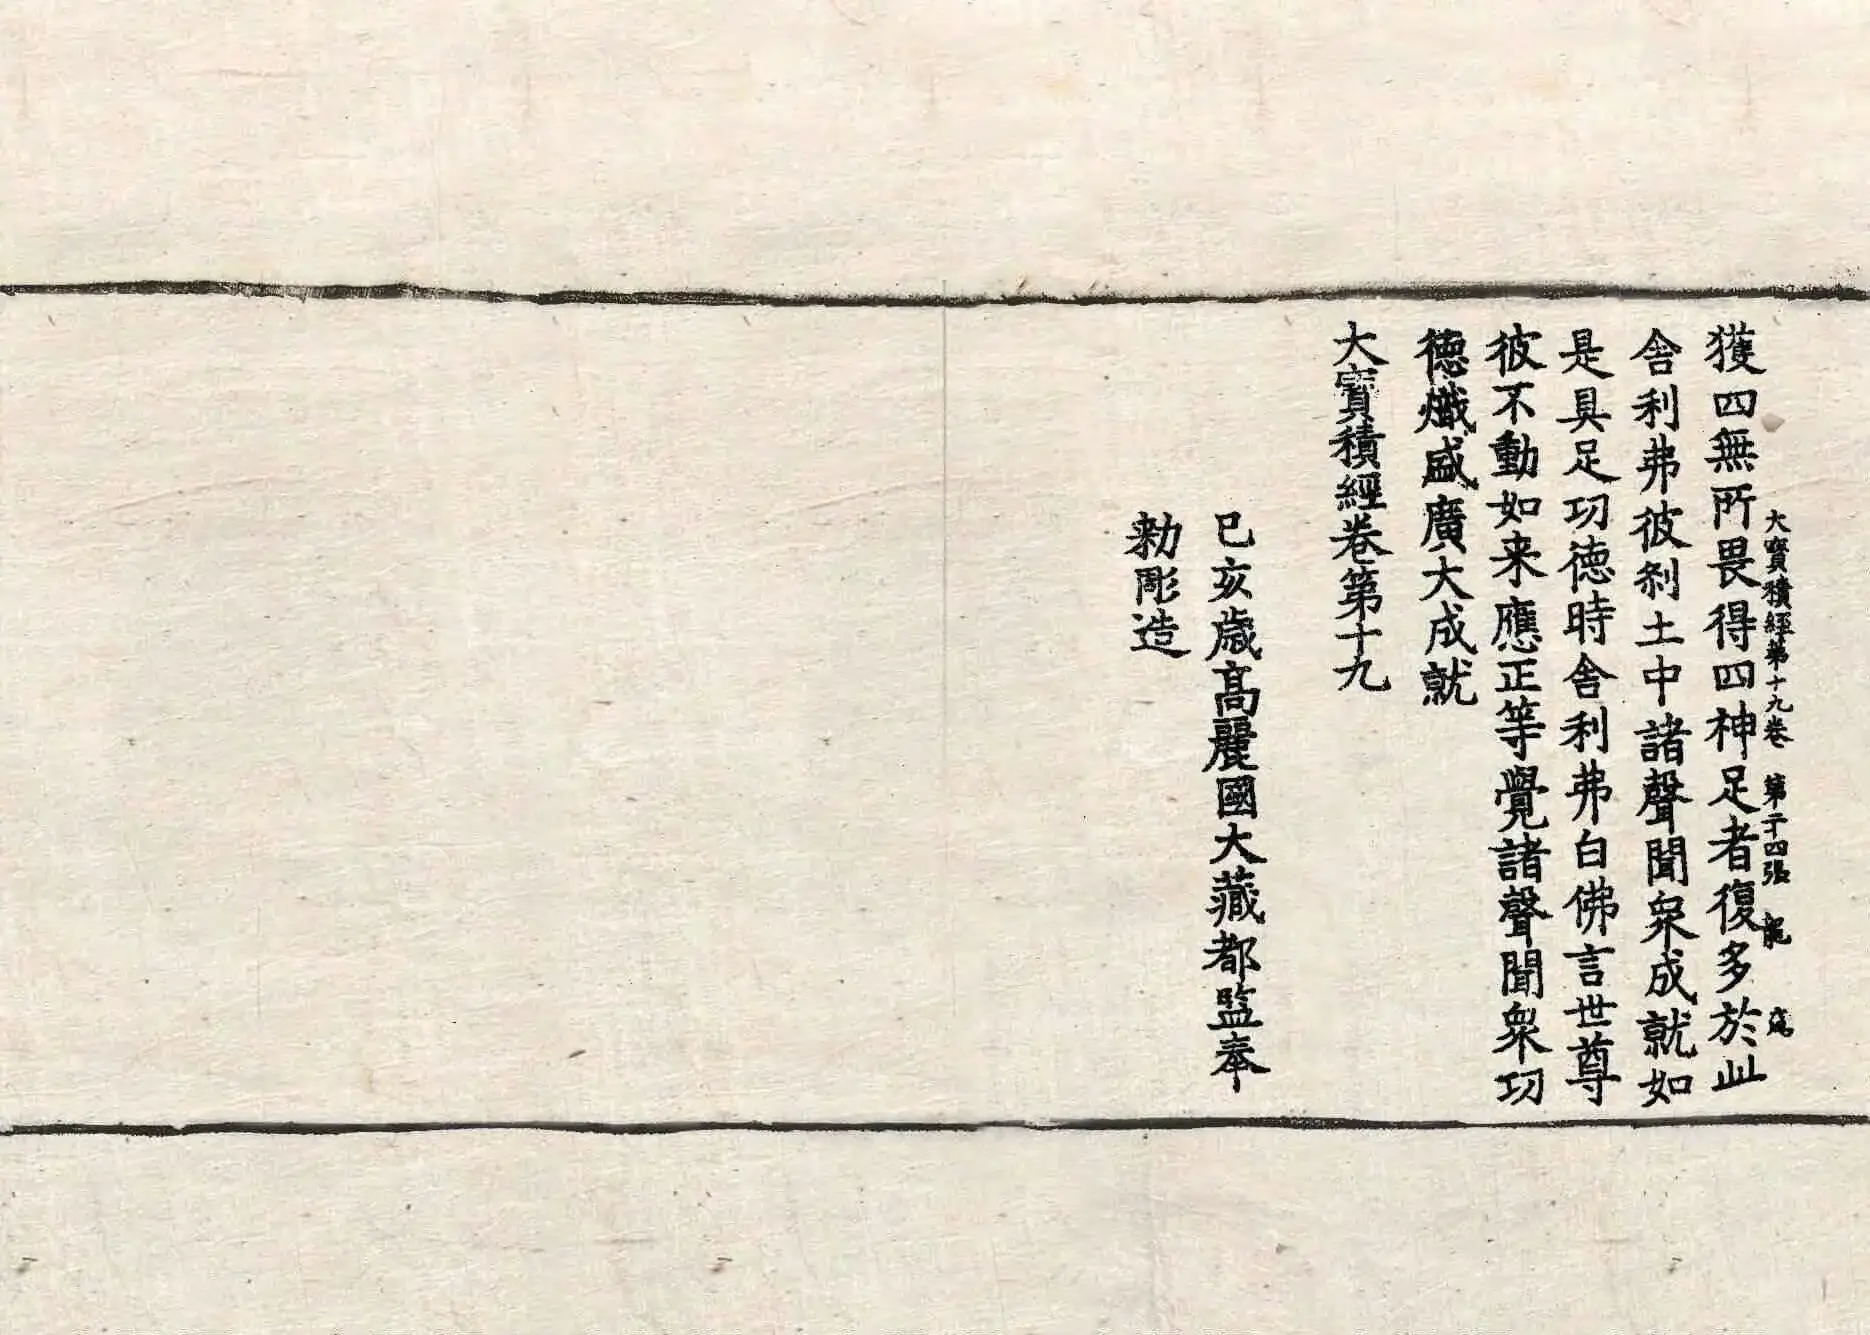 大寶積經第十九卷 第二十四張 龍
獲四無所畏得四神足者復多於此
舎利弗彼刹土中諸聲聞衆成就如
是具足功德時舎利弗白佛言世尊
彼不動如来應正等覺諸聲聞衆功
德熾盛廣大成就
大寶積經卷第十九
己亥歲高麗國大藏都監奉
勑彫造